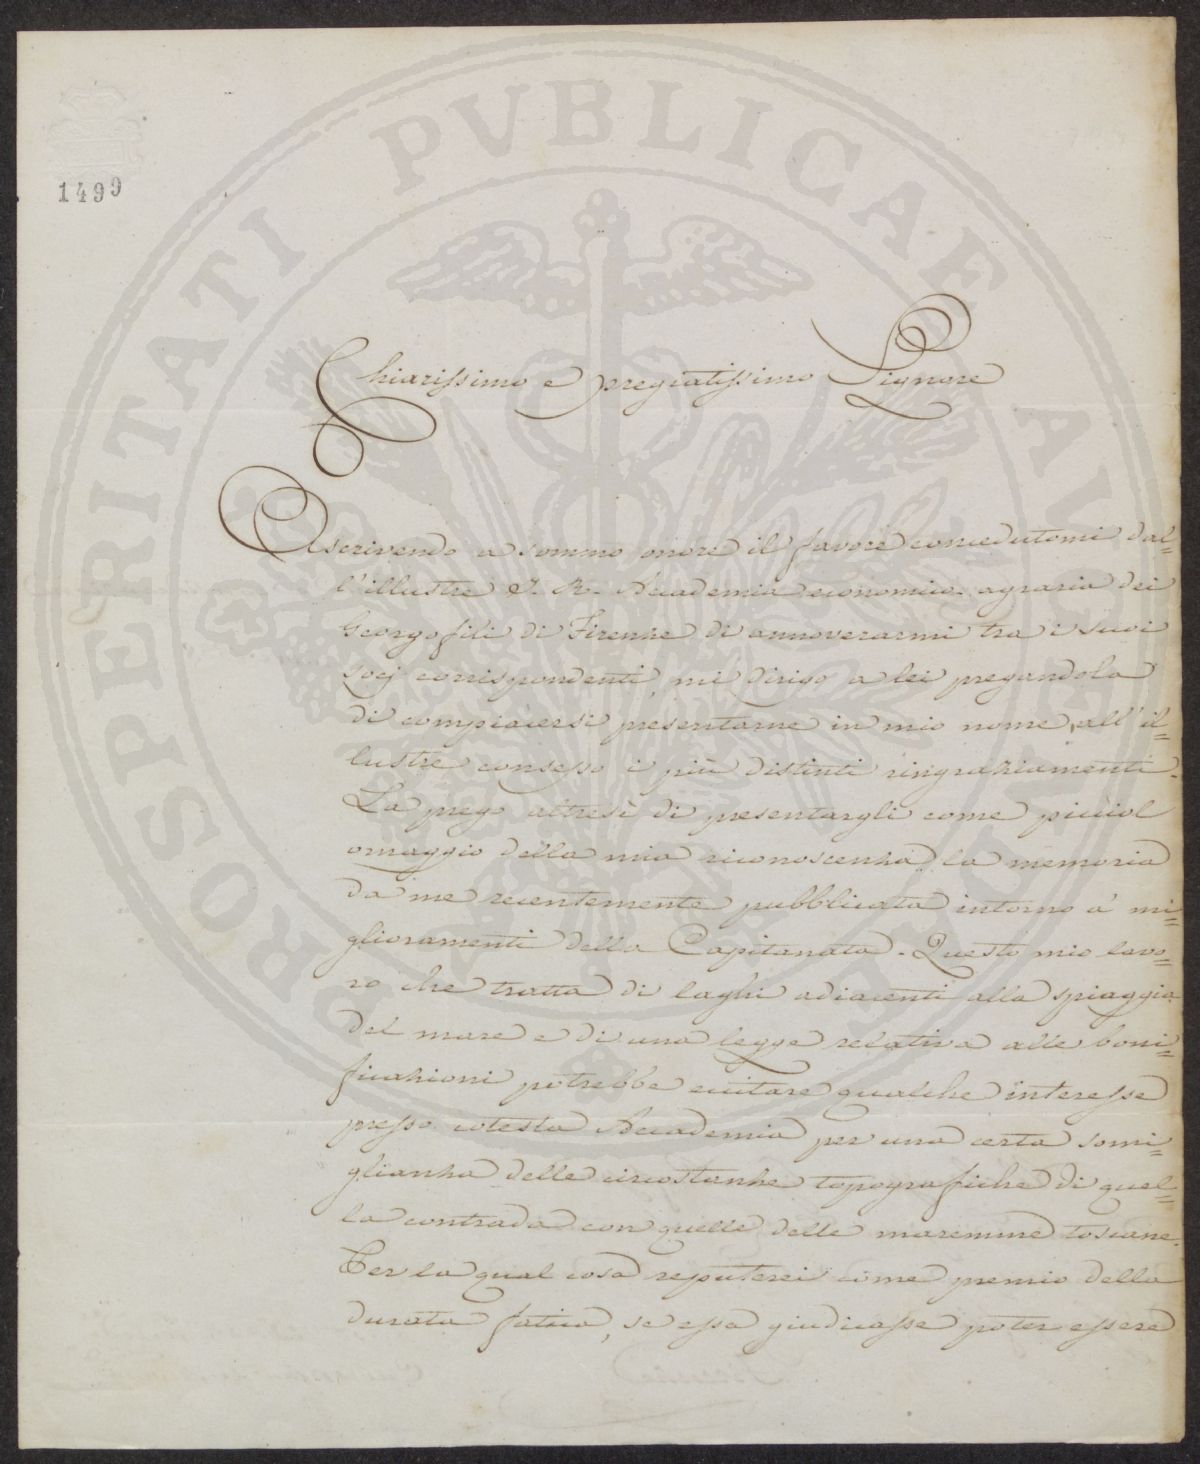 PROSPERITATI PVBLICAE AVGENDAE
1499
Chiarissimo e pregiatissimo Signore
Ascrivendo a sommo onore il favore concedutomi dal=
l'illustre I. R. Accademia economico-agraria dei
Georgofili di Firenze di annoverarmi tra i suoi
socj corrispondenti, mi dirigo a lei pregandola
di compiacersi presentarne in mio nome all'il=
lustre consesso i più distinti ringraziamenti.
La prego altresì di presentargli come picciol
omaggio della mia riconoscenza la memoria
da me recentemente pubblicata intorno a' mi=
glioramenti della Capitanata. Questo mio lavo=
ro che tratta di laghi adiacenti alla spiaggia
del mare e di una legge relativa alle boni=
ficazioni potrebbe eccitare qualche interesse
presso cotesta Accademia per una certa somi=
glianza delle circostanze topografiche di quel=
la contrada con quelle delle maremme toscane.
Per la qual cosa reputerei come premio della
durata fatica, se essa giudicasse poter essere